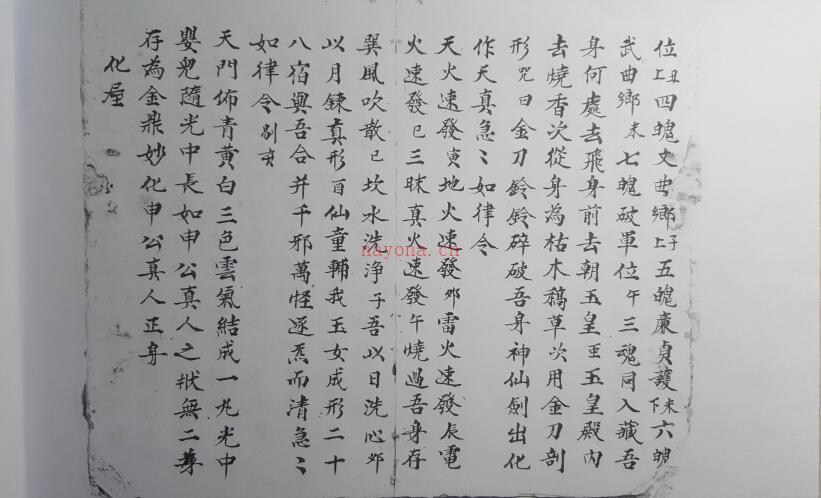 位丑上四魄文曲鄉子上五魄廉貞護未下六魄
武曲鄉未七魄破軍位午三魂同入藏吾
身何處去飛身前去朝玉皇玉皇殿內
去燒香次從身為枯木稿草次用金刀剖
形咒曰金刀鈴鈴碎破吾身神仙劍出化
作天真急〻如律令
天火速發寅地火速發卯雷火速發辰電
火速發巳三昧真火速發午燒過吾身存
巽風吹散巳坎水洗淨子吾以日洗心卯
以月鍊真形酉仙童輔我玉女成形二十
八宿與吾合并千邪萬怪逐炁而清急〻
如律令剔亥
天門佈青黃白三色雲氣結成一丸光中
嬰兒隨光中長如申公真人之狀無二尊
存為金鼎妙化申公真人正身
化屋
nayona.cn